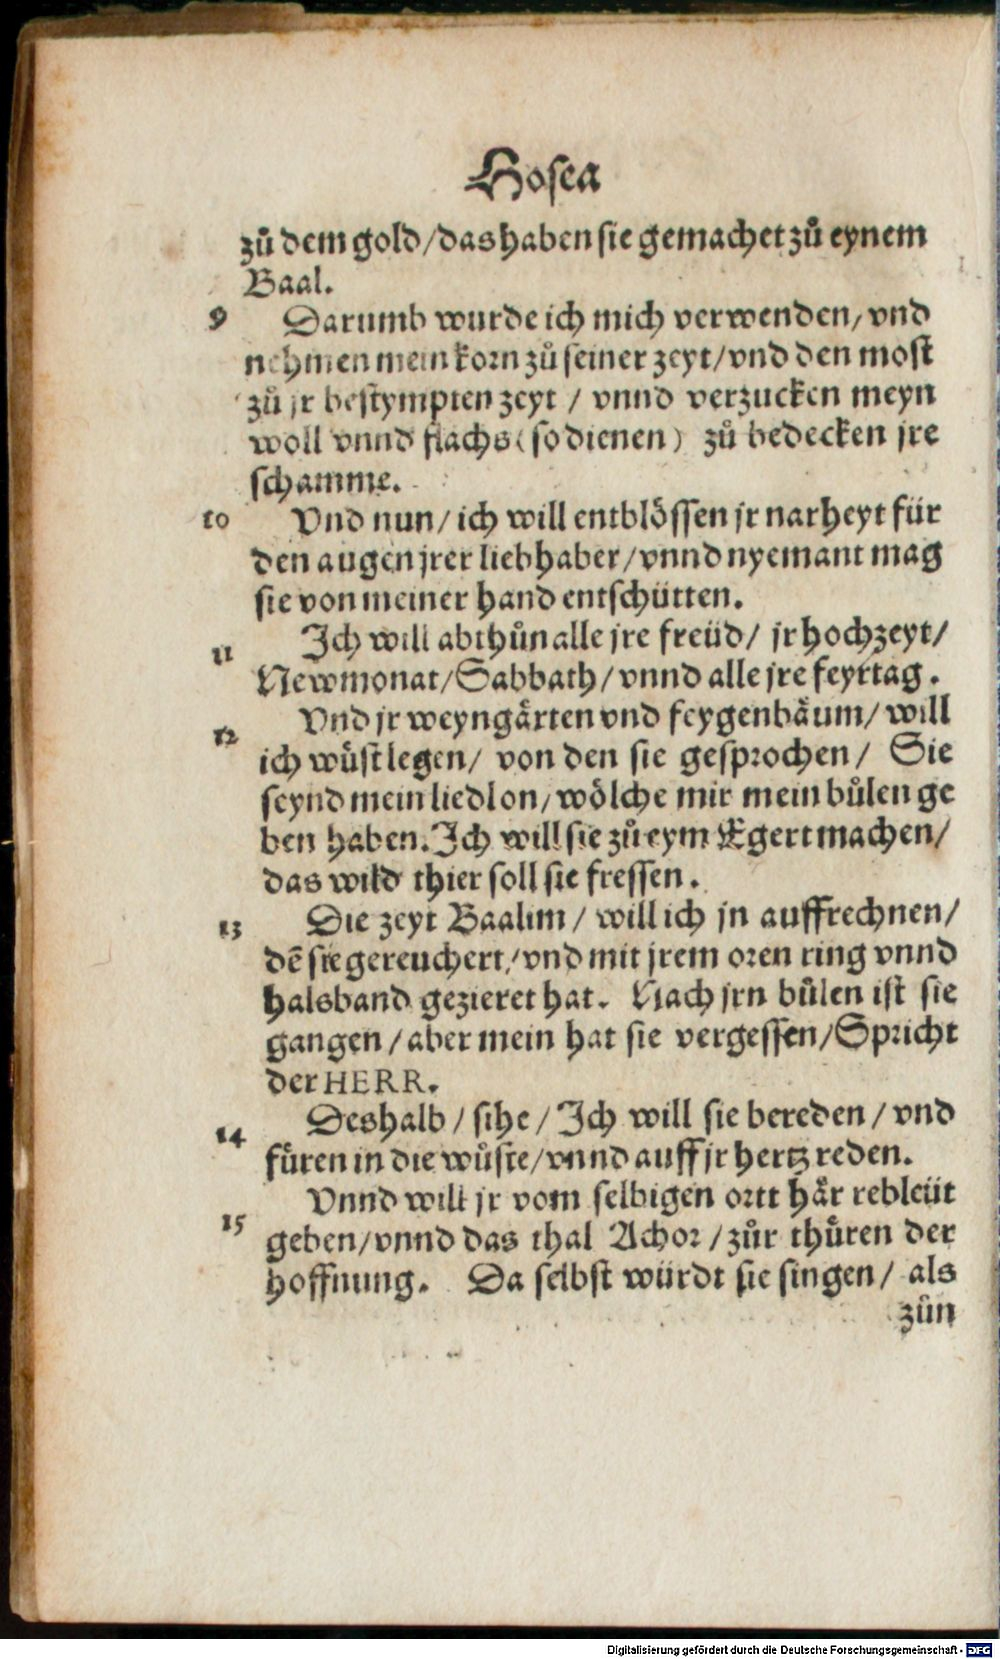 Hosea
zů dem gold/das haben sie gemachet zů eynem
Baal.
9 Darumb wurde ich mich verwenden/vnd
nehmen mein korn zů seiner zeyt/vnd den most
zů jr bestympten zeyt / vnnd verzucken meyn
woll vnnd flachs(so dienen) zů bedecken jre
schamme.
10 Vnd nun/ich will entblössen jr narheyt für
den augen jrer liebhaber/vnnd nyemant mag
sie von meiner hand entschütten.
11 Ich will abthůn alle jre freüd/ jr hochzeyt/
Newmonat/Sabbath/vnnd alle jre feyrtag.
12 Vnd jr weyngärten vnd feygenbäum/will
ich wüst legen/ von den sie gesprochen/ Sie
seynd mein liedlon/wölche mir mein bůlen ge
ben haben. Ich will sie zů eym Egert machen/
das wild thier soll sie fressen.
13 Die zeyt Baalim/ will ich jn auffrechnen/
dē sie gereuchert/vnd mit jrem oren ring vnnd
halsband gezieret hat. Nach jrn bůlen ist sie
gangen/aber mein hat sie vergessen/Spricht
der HERR.
14 Deshalb/sihe/Ich will sie bereden/vnd
füren in die wüste/vnnd auff jr hertz reden.
15 Vnnd will jr vom selbigen ortt här rebleüt
geben/vnnd das thal Achor/zůr thüren der
hoffnung. Da selbst würdt sie singen/ als
zůn
Digitalisierung gefördert durch die Deutsche Forschungsgemeinschaft - DFG